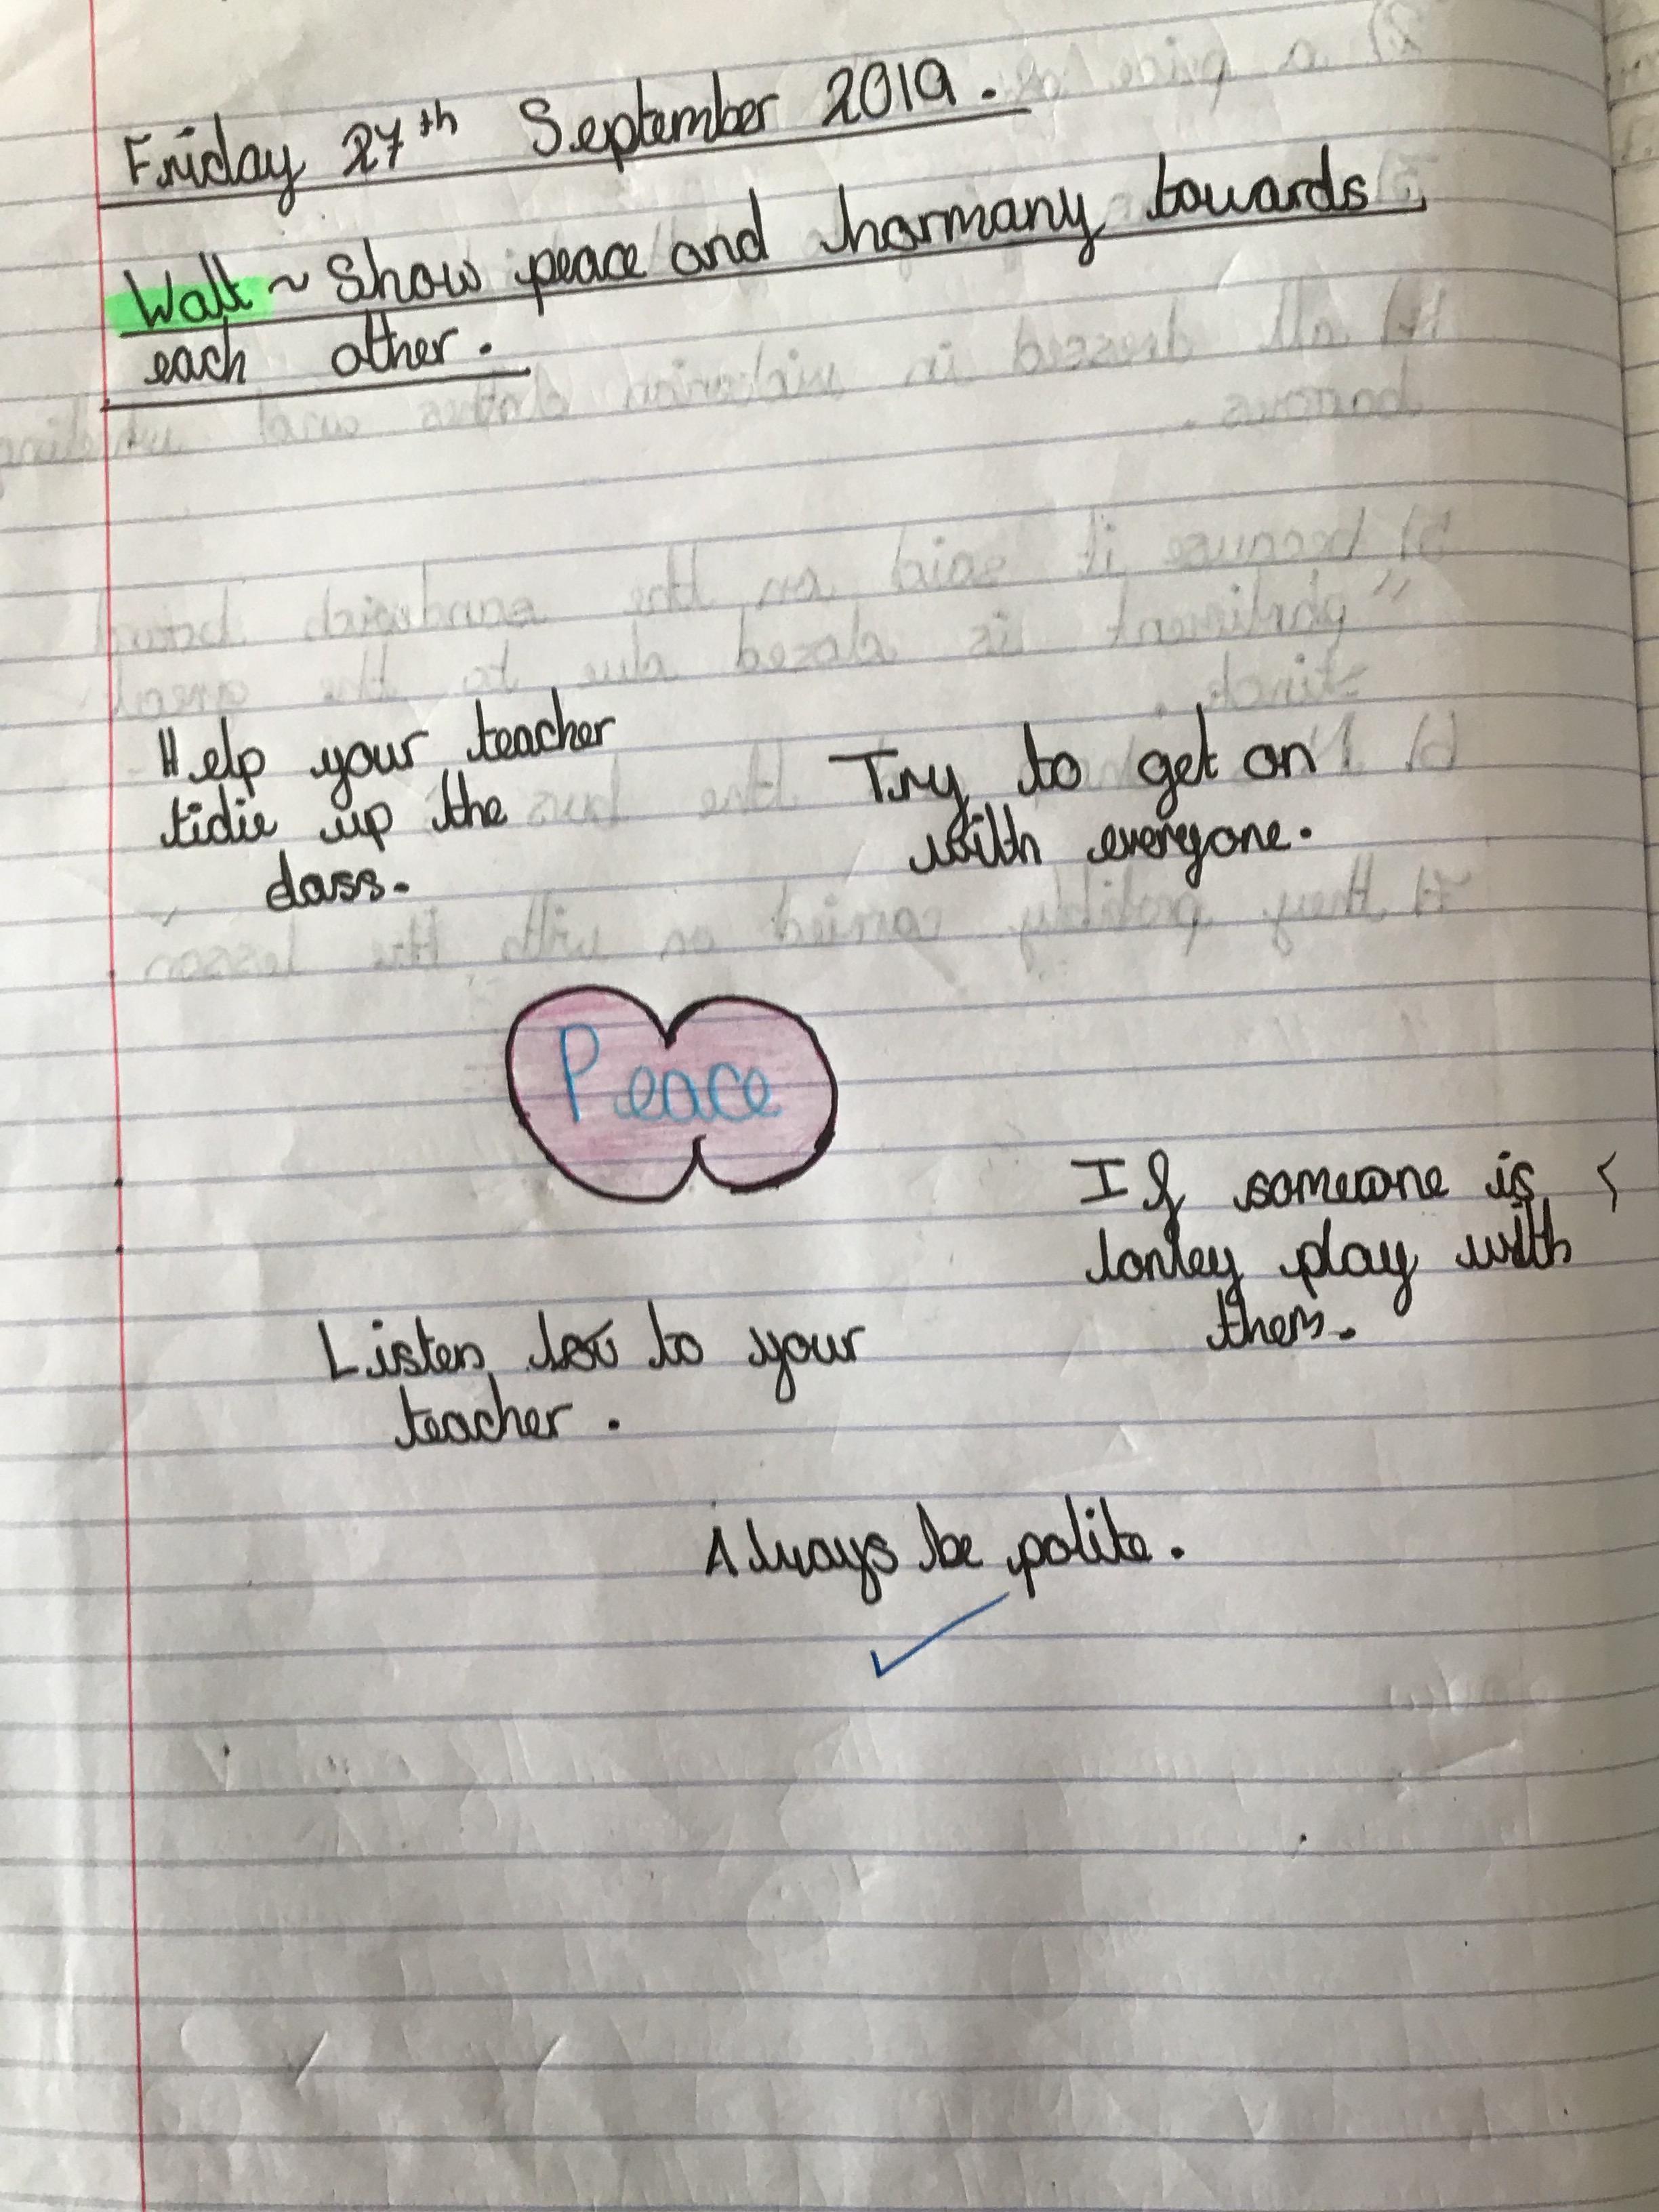 Friday 27th September 2019.
Walt ~ Show peace and harmany towards
each other.
Help your teacher
tidie up the
class.
Try to get on
with everyone.
Peace
If someone is
lonley play with
them.
Listen to your
teacher.
Always be polite.